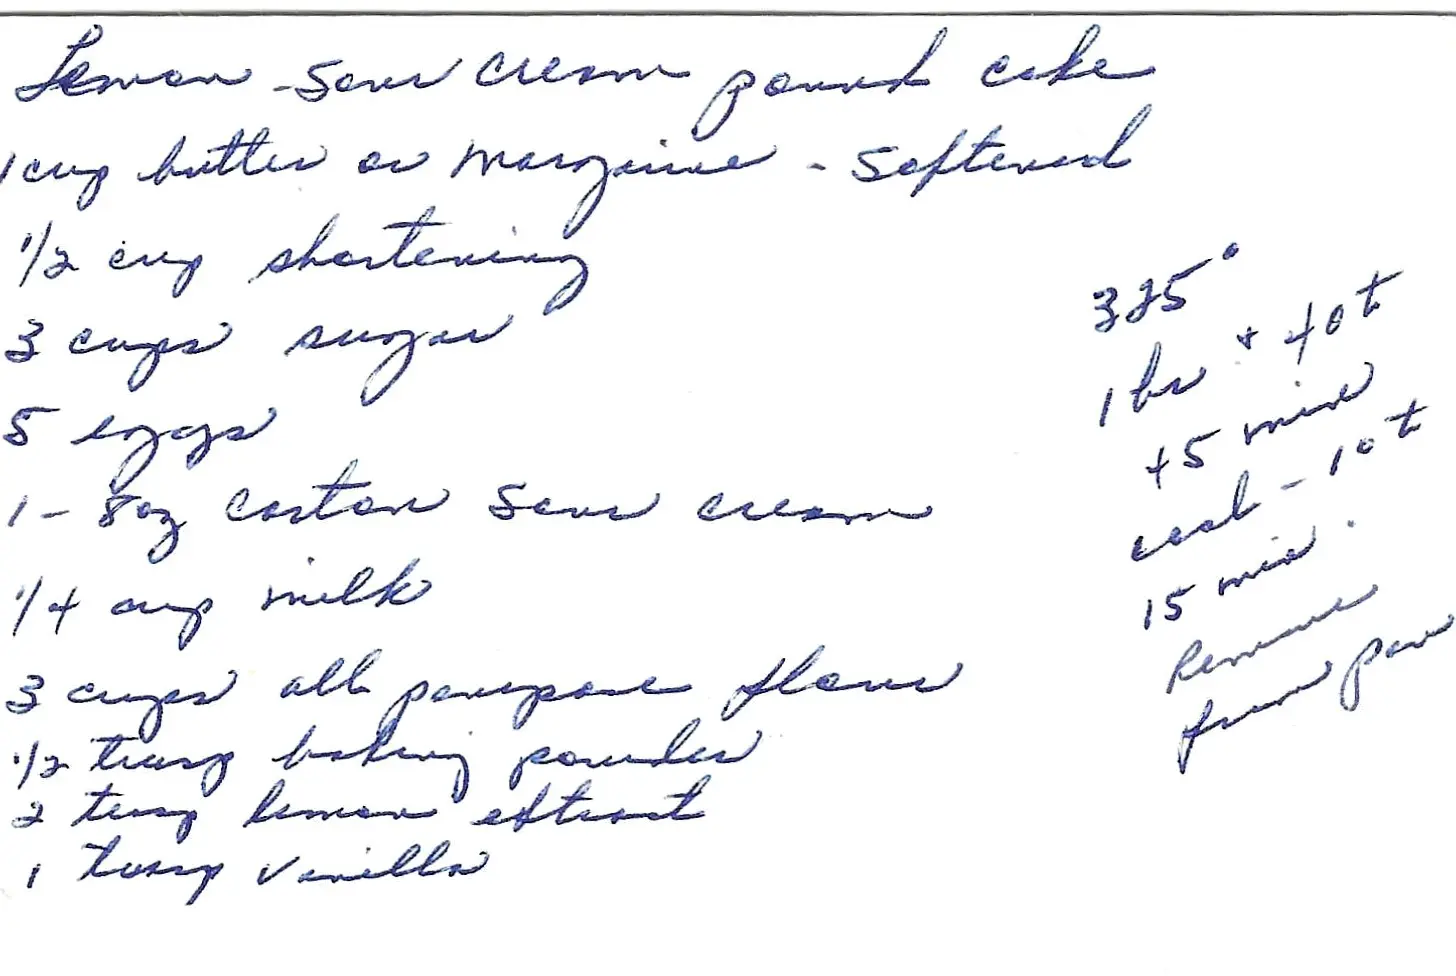 Lemon - Sour cream pound cake
1 cup butter or margarine - softened
1/2 cup shortening
3 cups sugar
5 eggs
1 - 8oz carton sour cream
1/4 cup milk
3 cups all purpose flour
1/2 teasp baking powder
2 teasp lemon extract
1 teasp vanilla
325°
1 hr + 40 t
45 min
cool - 10 t
15 min.
Remove
from pan